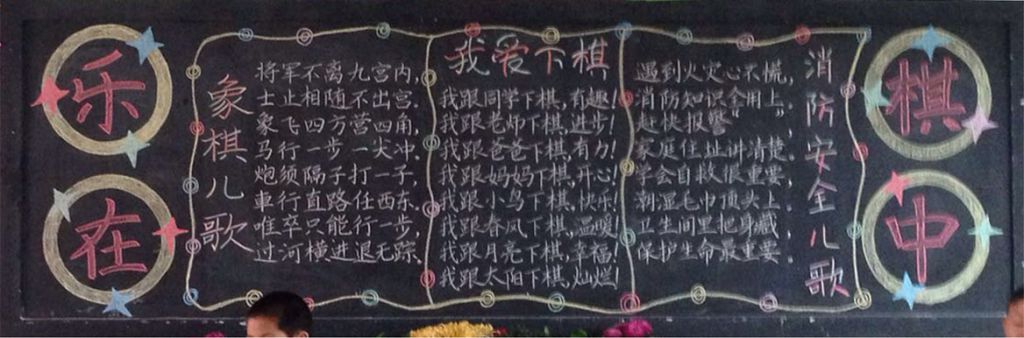 乐在棋中
象棋儿歌
将军不离九宫内，
士止相随不出宫．
象飞四方营四角，
马行一步一尖冲．
炮须隔子打一子，
車行直路任西东．
唯卒只能行一步，
过河横进退无踪．
我爱下棋
我跟同学下棋，有趣！
我跟老师下棋，进步！
我跟爸爸下棋，有力！
我跟妈妈下棋，开心！
我跟小鸟下棋，快乐！
我跟春风下棋，温暖！
我跟月亮下棋，幸福！
我跟太阳下棋，灿烂！
消防安全儿歌
遇到火灾心不慌，
消防知识全用上，
赶快报警
家庭住址讲清楚．
学会自救很重要，
潮湿毛巾顶头上，
卫生间里把身藏，
保护生命最重要．